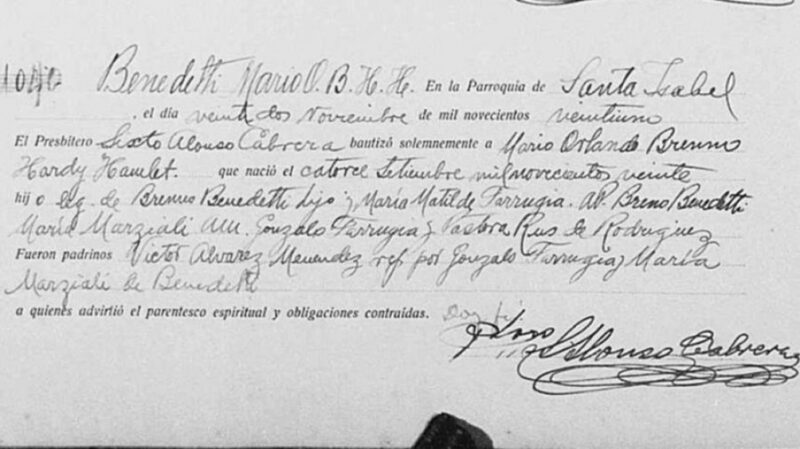 Benedetti Mario O. B. H. H. En la Parroquia de Santa Isabel
, el día veinte dos Noviembre de mil novecientos veintiuno
El Presbitero Sixto Alonso Cabrera bautizó solemnemente a Mario Orlando Brenno
Hardy Hamlet. que nació el catorce Setiembre mil novecientos veinte
hij o leg. de Brenno Benedetti hijo y María Matilde Farrugia. AP. Breno Benedetti
María Marziali AM. Gonzalo Farrugia y Pastora Rus de Rodriguez
Fueron padrinos Victor Alvarez Menendez rep por Gonzalo Farrugia y María
Marziali de Benedetti
a quienes advirtió el parentesco espiritual y obligaciones contraídas. Doy fe
Alonso Cabrera